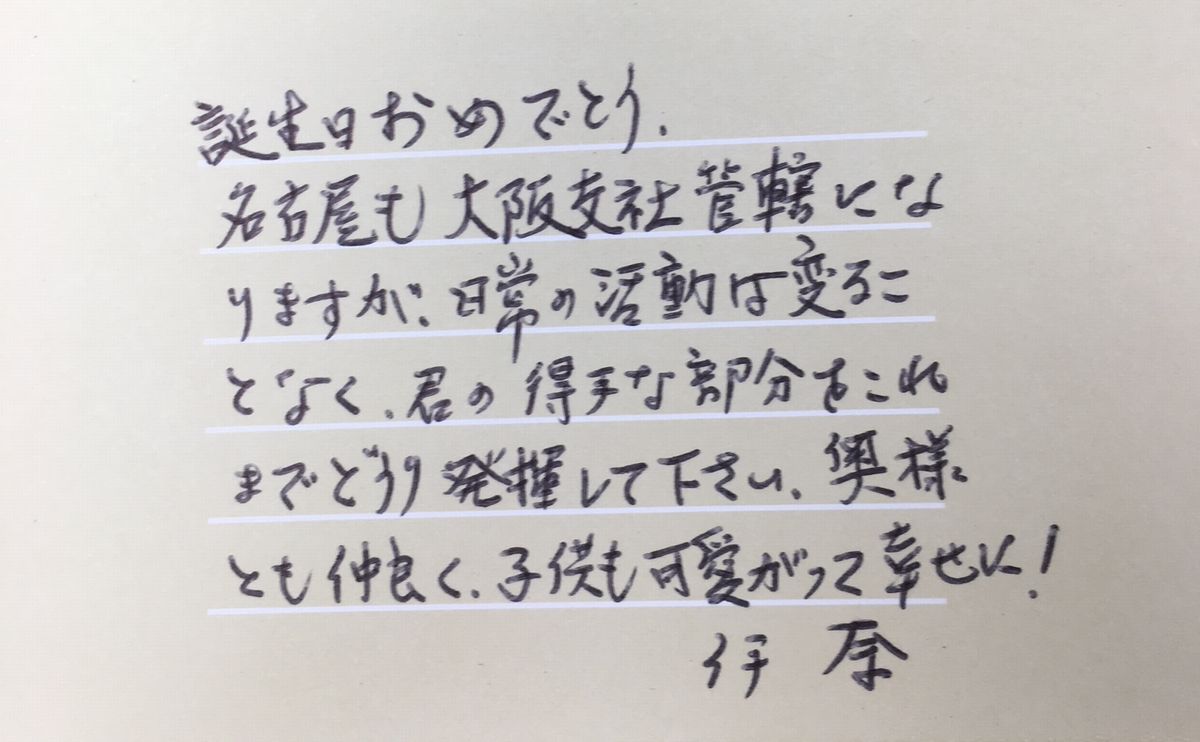 誕生日おめでとう.
名古屋も大阪支社管轄にな
りますが、日常の活動は変るこ
となく、君の得手な部分をこれ
までどうり発揮して下さい、奥様
とも仲良く、子供も可愛がって幸せに!